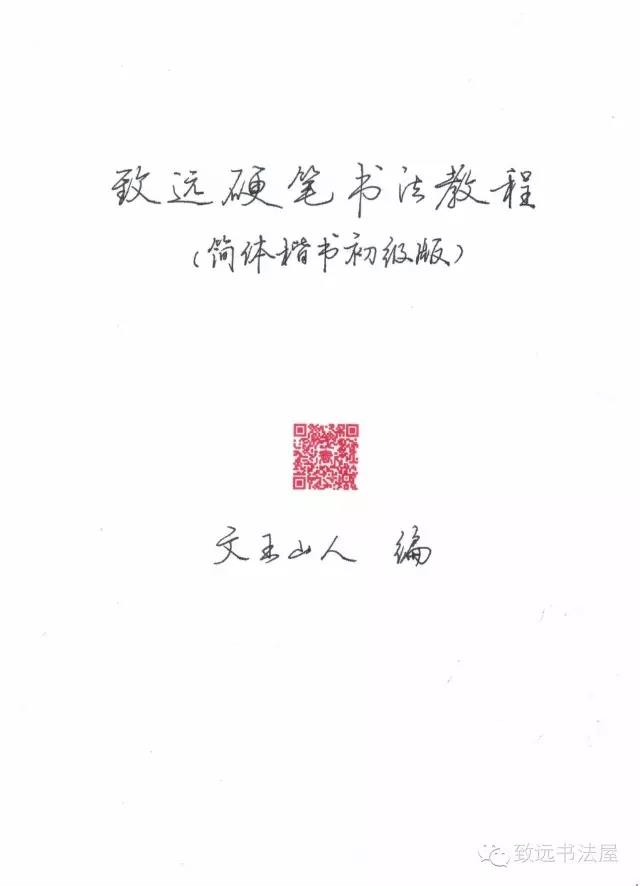 致远硬笔书法教程
（简体楷书初级版）
文玉山人 编
致远书法屋